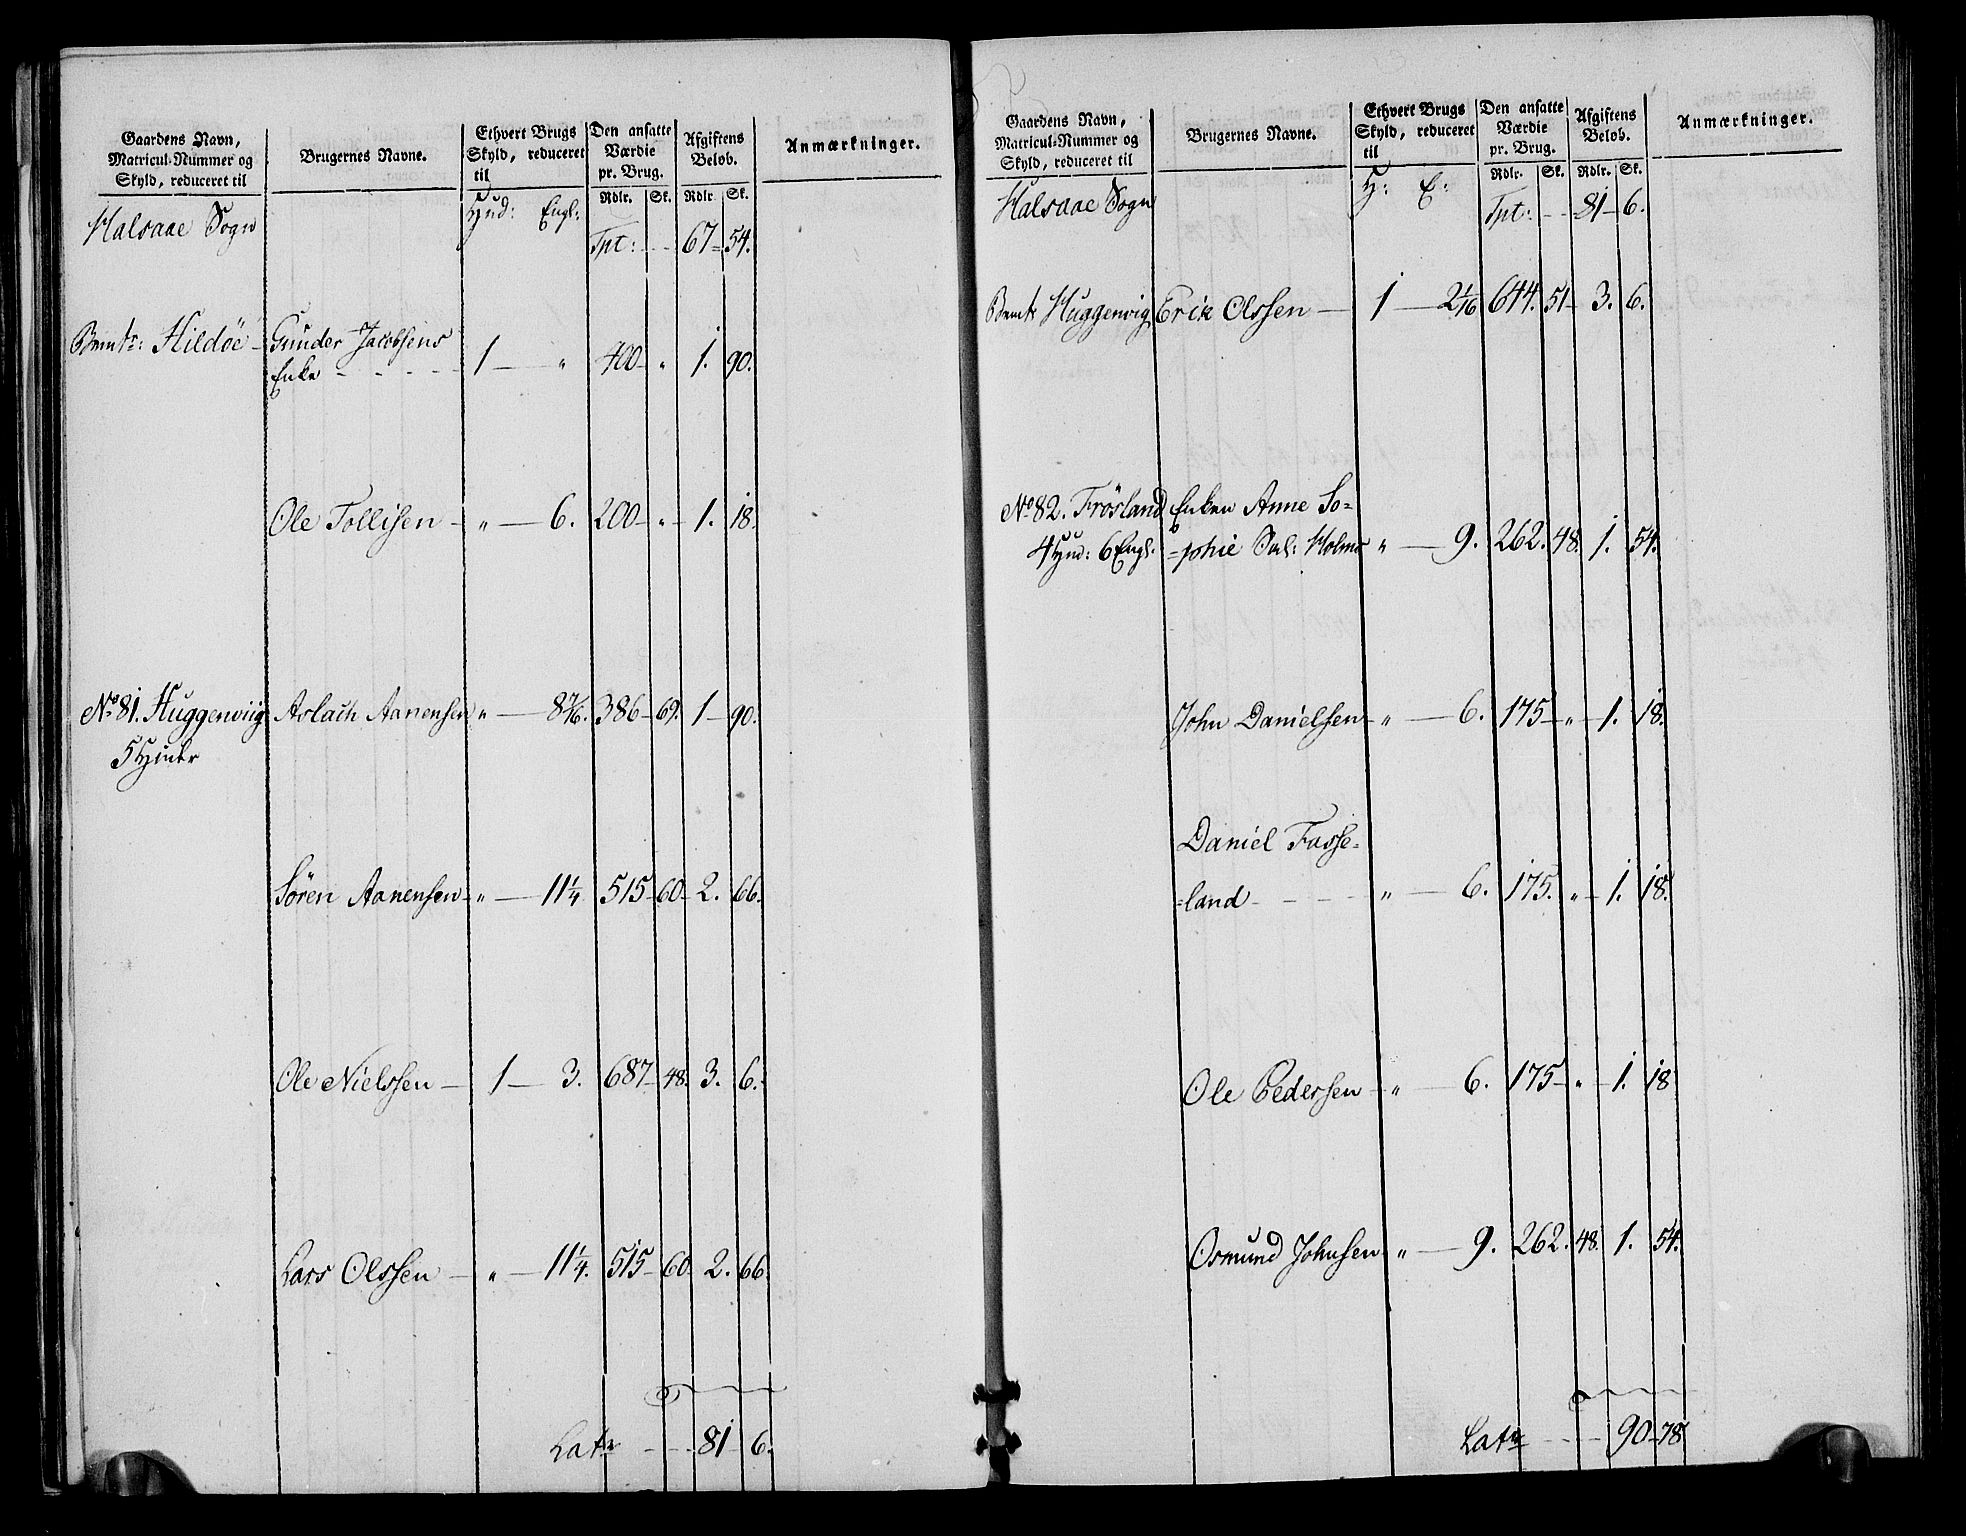 Gaardens Navn,
Matricul-Nummer og
Skyld, reduceret til
Brugernes Navne.
Ethvert Brugs
Skyld, reduceret
til
Den ansatte
Værdie
pr. Brug.
Rdlr. Sk.
Afgiftens
Beløb.
Rdlr. Sk.
Anmærkninger.
Halsaae Sogn
Hud: Engl:
Tpt: - - 67 = 54.
Bemte: Hildøe - Gunder Jacobsens
Enke - - - - - 1 — " 400 - " 1. 90.
Ole Tollisen - " — 6. 200 - " - 1. 18.
No 81. Huggenviig Aslach Aanensen " — 8 7/16. 386 - 69. 1 - 90.
5 Huder
Søren Aanensen - " — 11 1/4 515 - 60 - 2. 66.
Ole Nielssen — 1 — 3. 687 - 48. 3. 6.
Lars Olssen — " — 11 1/4. 515 - 60. 2. 66.
Lat - - - 81 - 6.
Gaardens Navn,
Matricul-Nummer og
Skyld, reduceret til
Brugernes Navne.
Ethvert Brugs
Skyld, reduceret
til
Den ansatte
Værdie
pr. Brug.
Rdlr. Sk.
Afgiftens
Beløb.
Rdlr. Sk.
Anmærkninger.
Halsaae Sogn
H: E:
Tpt: - - 81 - 6.
Bemte Huggenvig Erik Olssen — 1 — 2 1/16 644. 51 - 3. 6.
No 82. Frøsland Enken Anne So=
4 Hud: 6 Engl. =phie Sal: Holms " — 9. 262. 48. 1. 54.
John Danielsen - " — 6. 175 - " - 1. 18.
Daniel Fasse=
=land - - - - " — 6. 175. " - 1. 18.
Ole Pedersen - " — 6. 175 - " - 1. 18
Osmund Johnsen - " — 9. 262. 48. 1. 54.
Lat - - - 90 - 78